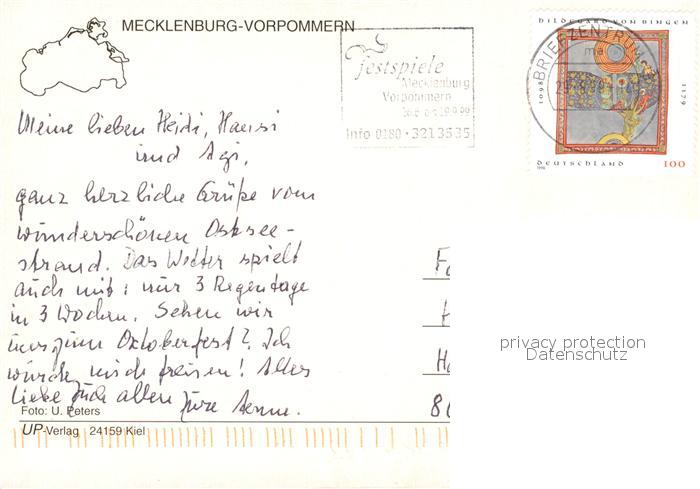 MECKLENBURG-VORPOMMERN
Festspiele
Mecklenburg
Vorpommern
Info 0180 · 3213535
HILDEGARD VON BINGEN
BRIEFZENTRUM
1098
1179
DEUTSCHLAND 100
1998
Meine lieben Heidi, Hansi
und Agi,
ganz herzliche Grüße vom
wunderschönen Ostsee-
strand. Das Wetter spielt
auch mit: nur 3 Regentage
in 3 Wochen. Sehen wir
uns zum Oktoberfest? Ich
würde mich freuen! Alles
Liebe Euch allen Eure
Foto: U. Peters
UP-Verlag 24159 Kiel
privacy protection
Datenschutz